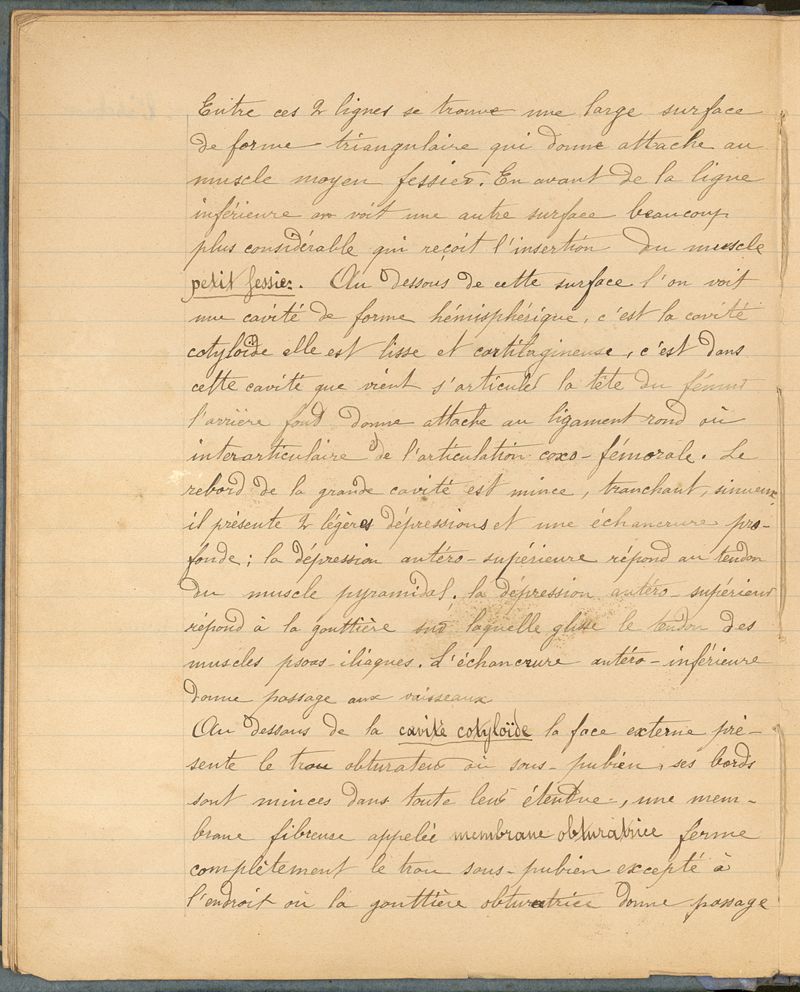 Entre ces 2 lignes se trouve une large surface
de forme triangulaire qui donne attache au
muscle moyen fessier. En avant de la ligne
inférieure on voit une autre surface beaucoup
plus considérable qui reçoit l'insertion du muscle
petit fessier. Au dessous de cette surface l'on voit
une cavité de forme hémisphérique, c'est la cavité
cotyloïde elle est lisse et cartilagineuse, c'est dans
cette cavité que vient s'articuler la tête du fémur
l'arrière fond donne attache au ligament rond ou
interarticulaire de l'articulation coxo-fémorale. Le
rebord de la grande cavité est mince, tranchant, sinueux
il présente 2 légères dépressions et une échancrure pro-
fonde; la dépression antéro-supérieure répond au tendon
du muscle pyramidal. la dépression antéro-supérieur
répond à la gouttière sur laquelle glisse le tendon des
muscles psoas-iliaques. L'échancrure antéro-inférieure
donne passage aux vaisseaux
Au dessous de la cavité cotyloïde la face externe pré-
sente le trou obturateur où sous-pubien, ses bords
sont minces dans toute leur étendue, une mem-
brane fibreuse appelée membrane obturatrice ferme
complètement le trou sous-pubien excepté à
l'endroit où la gouttière obturatrice donne passage